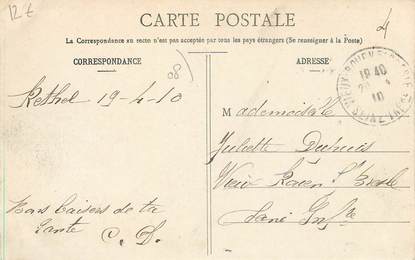 12 €
CARTE POSTALE
La Correspondance au recto n'est pas acceptée par tous les pays étrangers (Se renseigner à la Poste)
CORRESPONDANCE
ADRESSE
Rethel 19-4-10
Mademoiselle
Juliette Dubuis
Vieux Rouen S/ Bresle
Seine Infre
Bons baisers de ta
tante C. D.
18 40
10